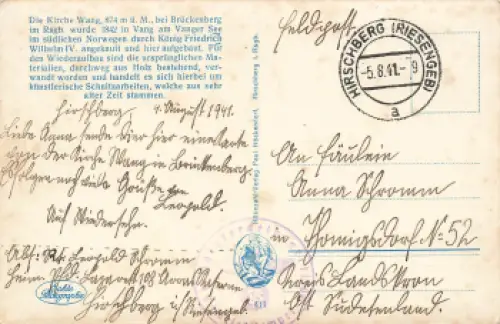 Die Kirche Wang, 874 m ü. M., bei Brückenberg
im Rsgb. wurde 1842 in Vang am Vanger See
im südlichen Norwegen durch König Friedrich
Wilhelm IV. angekauft und hier aufgebaut. Für
den Wiederaufbau sind die ursprünglichen Ma-
terialien, durchweg aus Holz bestehend, ver-
wandt worden und handelt es sich hierbei um
künstlerische Schnitzarbeiten, welche aus sehr
alter Zeit stammen.
Hirschberg, 4. August 1941.
Liebe Anna sende dir hier eine Karte
von der Kirche Wang in Brückenberg.
Erfolgen noch viele Grüße von
Leopold.
Auf Wiedersehn.
Abs: Leopold Schromm
Res. Lazarett
Hirschberg i/Riesengeb.
Echte Photographie
Feldpost
HIRSCHBERG (RIESENGEB)
-5.8.41.-9
a
An Fräulein
Anna Schromm
in Königsdorf No 52
Kreis Landskron
Ost Sudetenland.